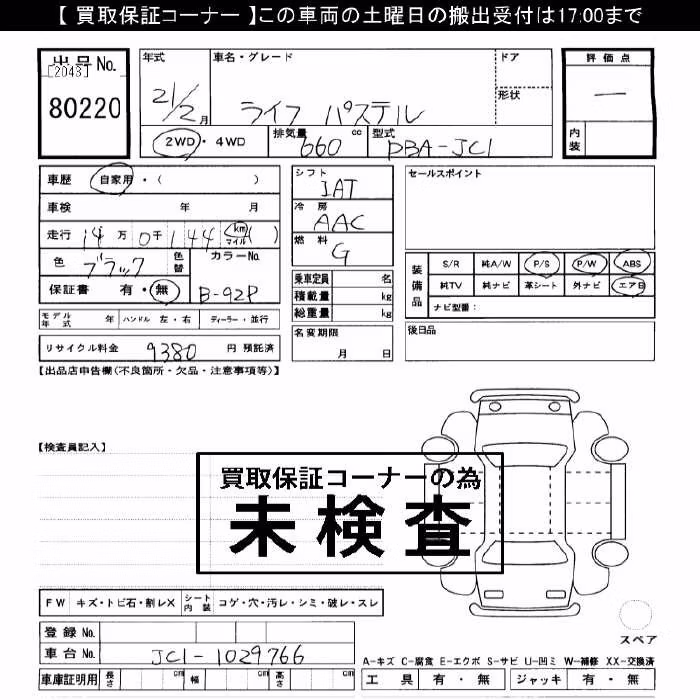 【 買取保証コーナー 】この車両の土曜日の搬出受付は17:00まで
出品No. 年式 車名・グレード ドア 評価点
[2043] 形状
80220 21/2月 ライフ パステル 一
2WD・4WD 排気量 660 cc 型式 DBA-JC1 内装
車歴 自家用・( ) シフト IAT セールスポイント
車検 年 月 冷房 AAC
走行 14万0千144 (km マイル) 燃料 G
色 ブラック 色替 カラーNo. B-92P
保証書 有・無
乗車定員 名
積載量 kg
総重量 kg
装備品 S/R 純A/W P/S P/W ABS
純TV 純ナビ 革シート 外ナビ エアB
ナビ型番:
モデル年式 年 ハンドル 左・右 ディーラー・並行
名変期限 月 日
後日品
リサイクル料金 9380 円 預託済
【出品店申告欄(不良箇所・欠品・注意事項等)】
【検査員記入】
買取保証コーナーの為
未検査
FW キズ・トビ石・割レX シート内装 コゲ・穴・汚レ・シミ・破レ・スレ
登録No.
スペア
車台No. JC1-1029766
A-キズ C-腐食 E-エクボ S-サビ U-凹ミ W-補修 XX-交換済
車庫証明用 長さ cm 幅 cm 高さ cm
工具 有・無 ジャッキ 有・無